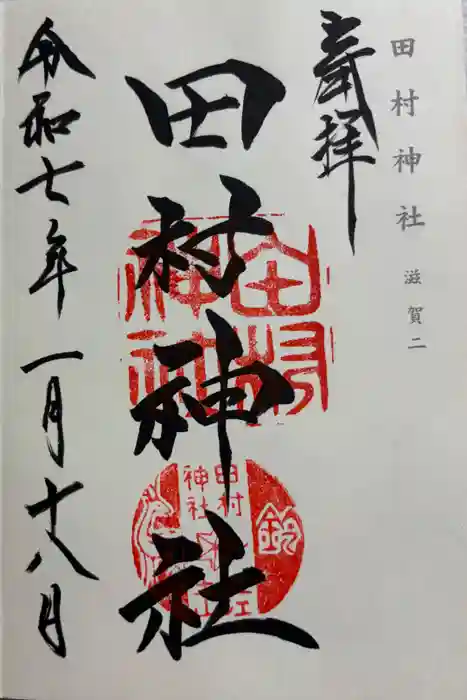 田村神社 滋賀二
奉拝
田村神社
田村
神社
田村
神社
鈴
令和七年一月十八日